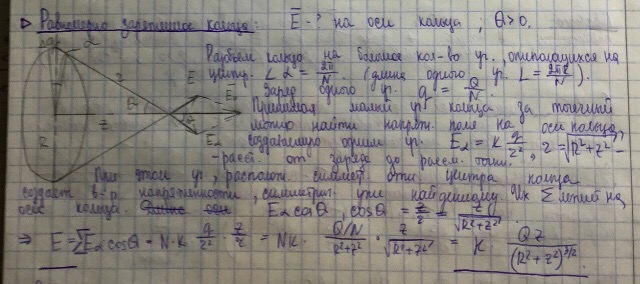 ▷ Равномерно заряженное кольцо: E̅ - ? на оси кольца ; Q > 0.
Разобьем кольцо на большое кол-во уч., опирающихся на
центр. ∠ α = 2π/N. (длина одного уч. L = 2πR/N).
Заряд одного уч. q = Q/N.
Принимая малый уч. кольца за точечный
можно найти напряж. поле на оси кольца,
создаваемую одним уч. Eα = k q/r², r = √(R²+z²) -
- расст. от заряда до рассм. точки.
При этом уч, располож. симмет. отн. центра кольца
создает в-р напряженности, симметрич. уже найденному. Их Σ лежит на
оси кольца. Eα cosθ, cosθ = z/r = z/√(R²+z²)
⇒ E = ΣEα cosθ = N·k·q/r²·z/r = Nk·(Q/N)/(R²+z²)·z/√(R²+z²) = k Qz/(R²+z²)^(3/2).